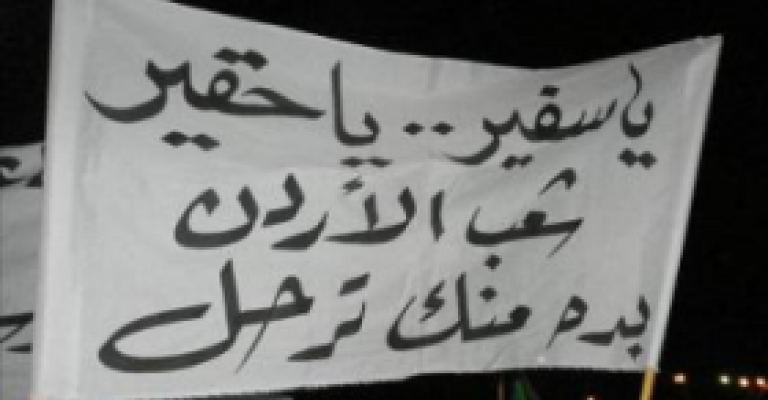 ياسفير.. يا حقير
شعب الأردن
بده منك ترحل